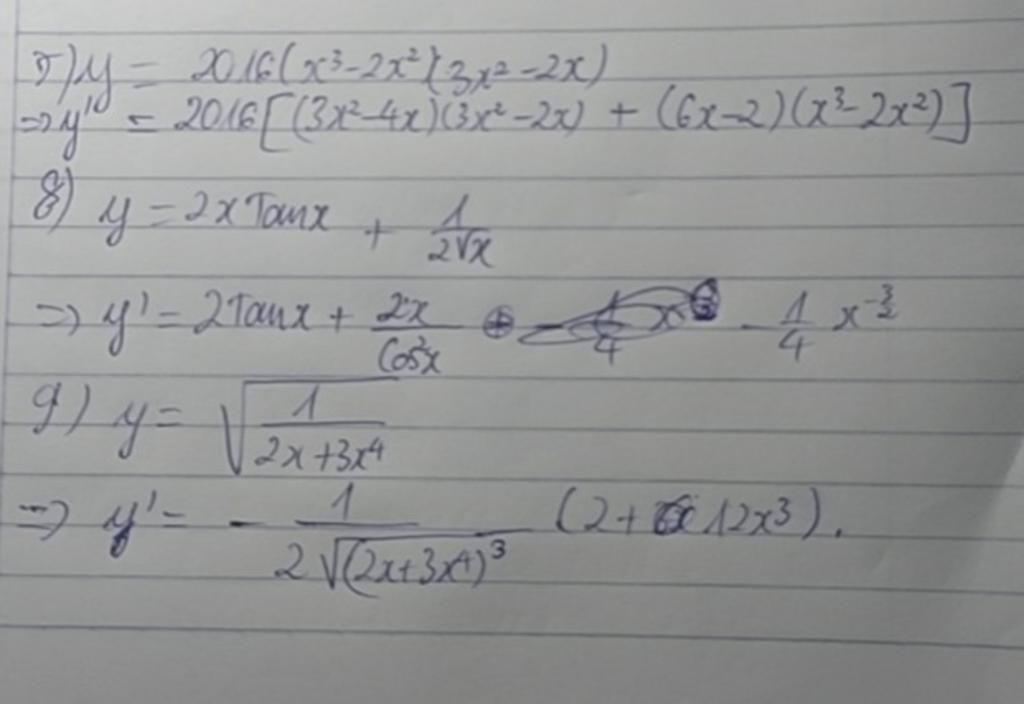 7) y = 2016(x³-2x²)(3x²-2x)
=> y' = 2016[(3x²-4x)(3x²-2x) + (6x-2)(x³-2x²)]
8) y = 2x Tanx + 1/(2√x)
=> y' = 2Tanx + 2x/Cos²x - 1/4 x^(-3/2)
9) y = √(1/(2x+3x⁴))
=> y' = - 1/(2√(2x+3x⁴)³) (2+12x³).